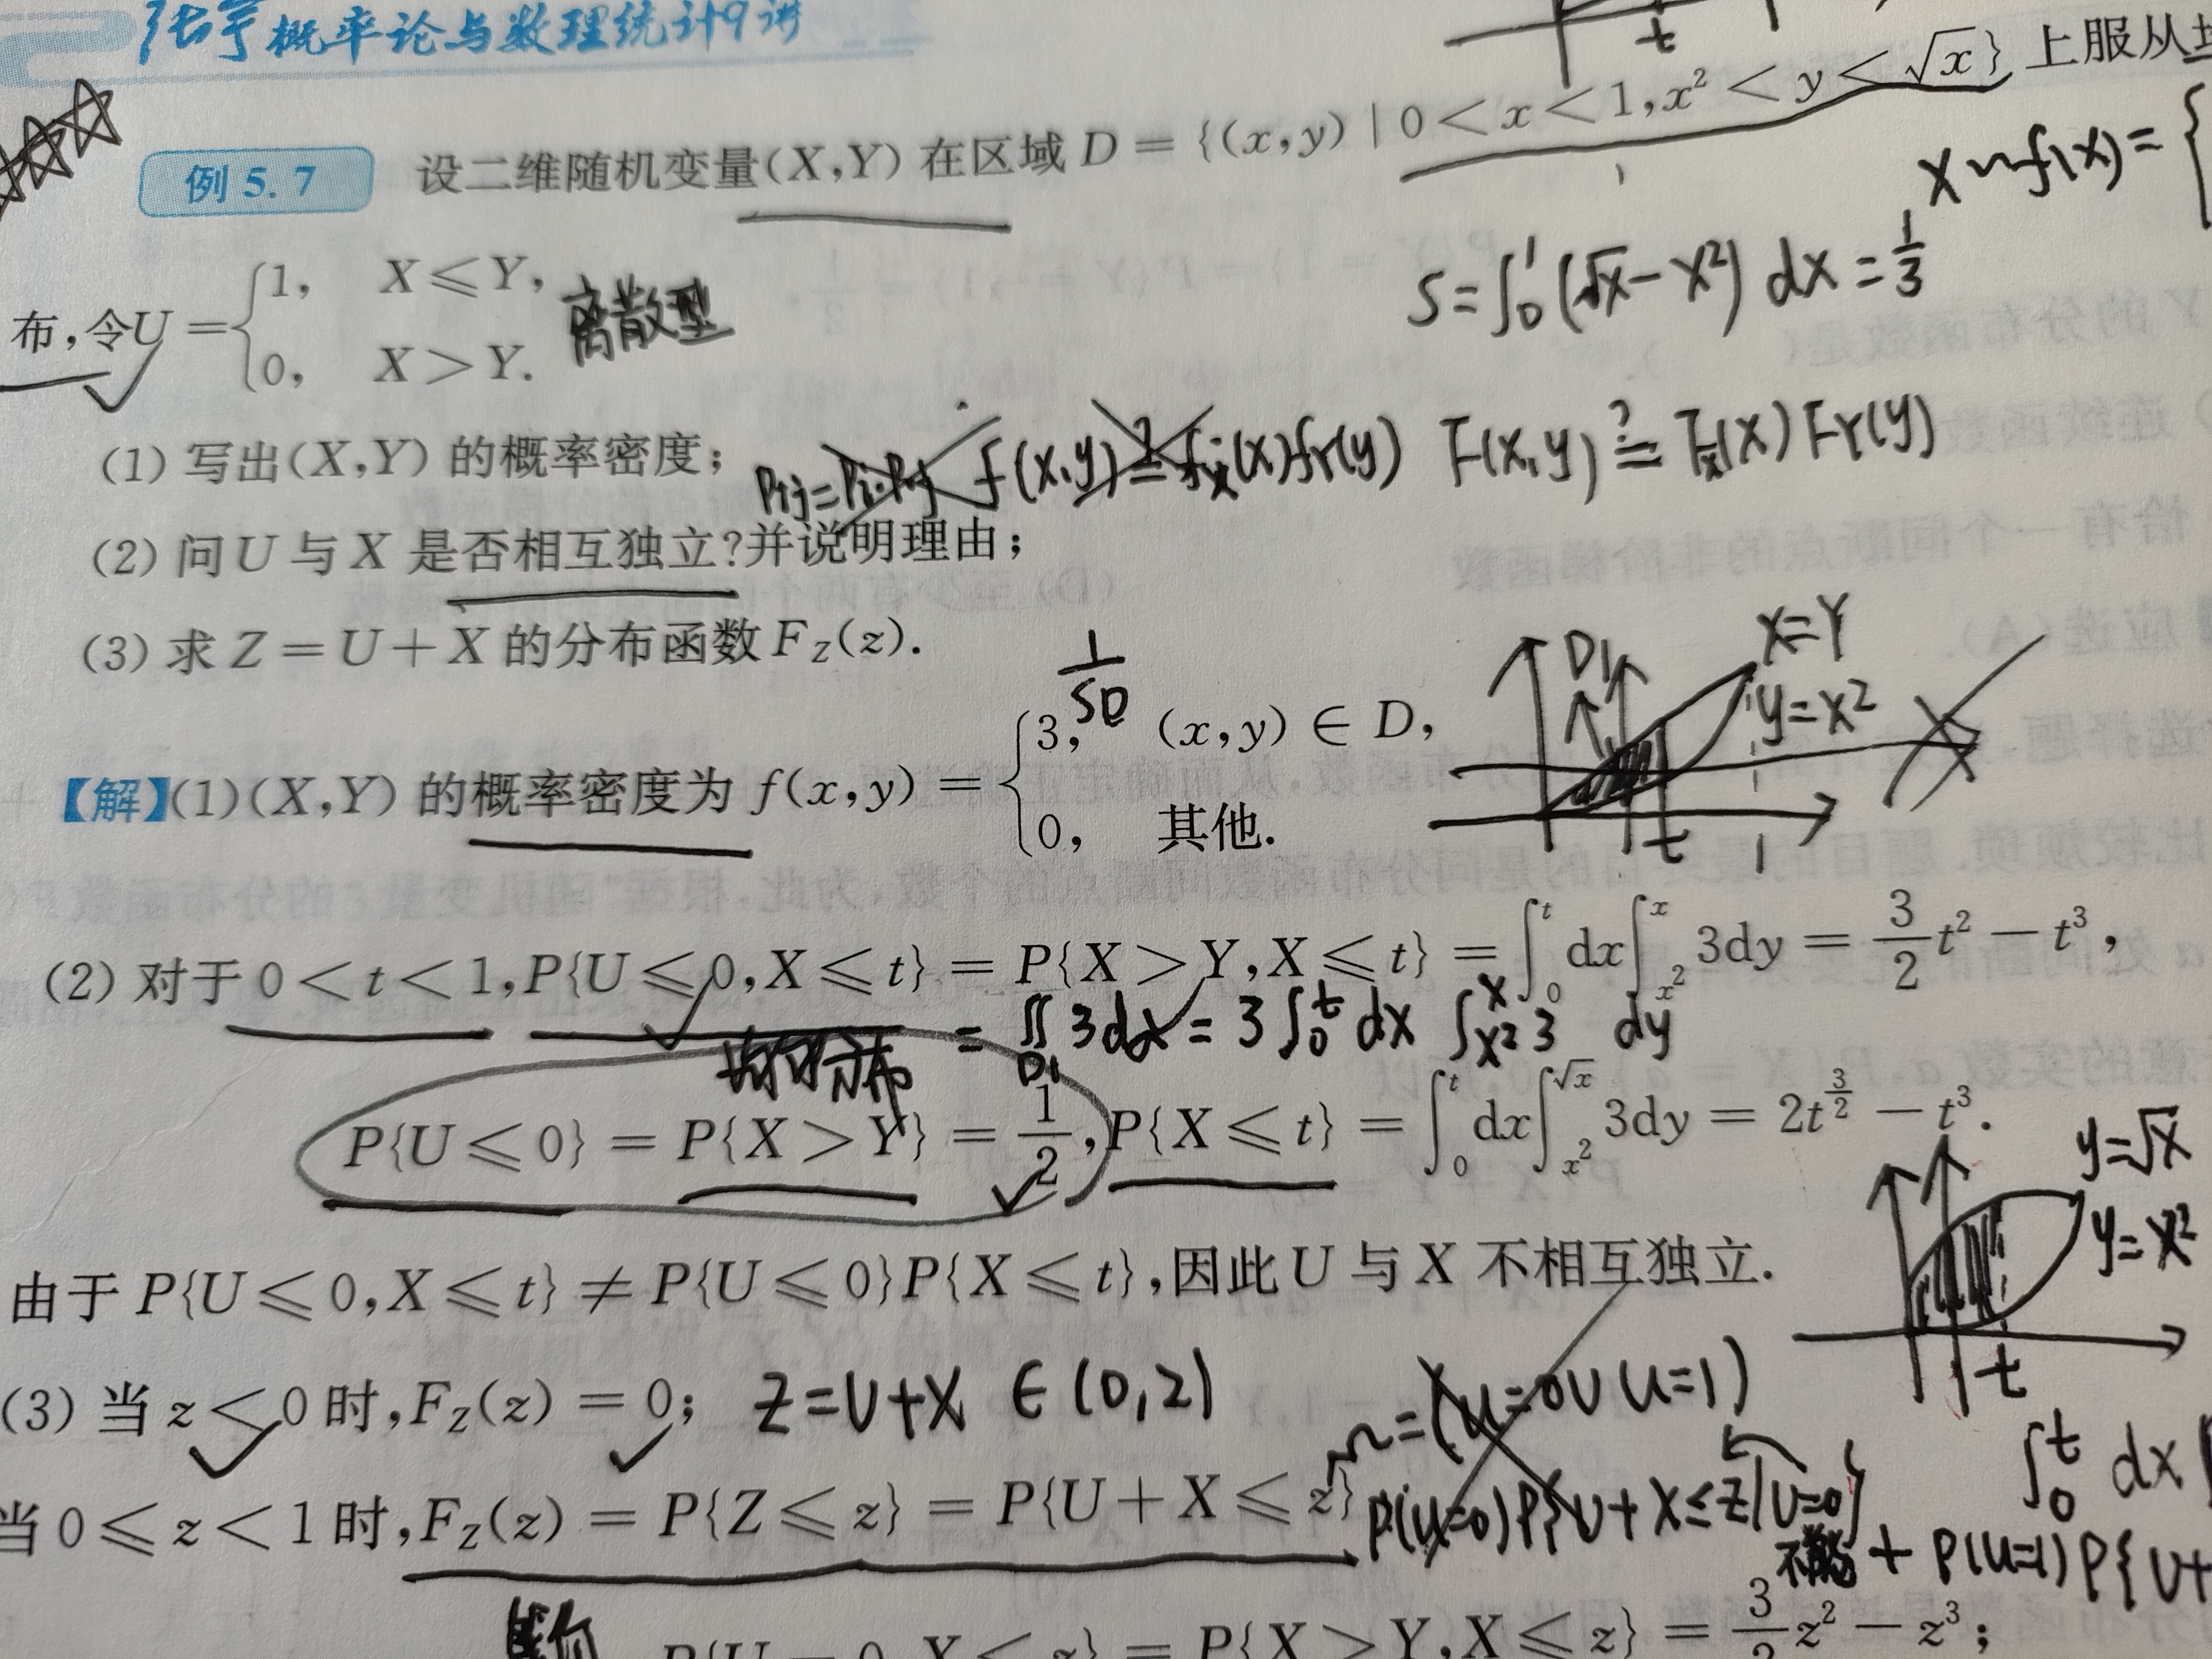 张宇概率论与数理统计9讲
t
例 5.7 设二维随机变量(X,Y) 在区域 D = {(x,y) | 0 < x < 1, x² < y < √x} 上服从
X ~ f(x) = {
布,令U = { 1, X ⩽ Y,
0, X > Y.
离散型
S = ∫₀¹ (√x - x²) dx = 1/3
(1) 写出(X,Y) 的概率密度;
Pij = Pi·P·j f(x,y) ?= fx(x)fY(y) F(x,y) ?= Fx(x) FY(y)
(2) 问 U 与 X 是否相互独立?并说明理由;
(3) 求 Z = U + X 的分布函数 F_Z(z).
D1 X=Y
y=x²
t 1
1/SD
【解】(1)(X,Y) 的概率密度为 f(x,y) = { 3, (x,y) ∈ D,
0, 其他.
(2) 对于 0 < t < 1, P{U ⩽ 0, X ⩽ t} = P{X > Y, X ⩽ t} = ∫₀ᵗ dx ∫_{x²}^{x} 3dy = 3/2 t² − t³,
= ∬_{D1} 3dx = 3∫₀ᵗ dx ∫_{x²}^{x} 3 dy
均匀分布
P{U ⩽ 0} = P{X > Y} = 1/2, P{X ⩽ t} = ∫₀ᵗ dx ∫_{x²}^{√x} 3dy = 2t^{3/2} − t³.
y=√x
y=x²
t
由于 P{U ⩽ 0, X ⩽ t} ≠ P{U ⩽ 0}P{X ⩽ t},因此 U 与 X 不相互独立.
(3) 当 z < 0 时, F_Z(z) = 0; Z=U+X ∈ (0,2)
Ω=(U=0∪U=1)
∫₀ᵗ dx
当 0 ⩽ z < 1 时, F_Z(z) = P{Z ⩽ z} = P{U + X ⩽ z}
P(U=0)P{U+X≤Z|U=0}
+ P(U=1)P{U+
P{U = 0, X ⩽ z} = P{X > Y, X ⩽ z} = 3/2 z² − z³;